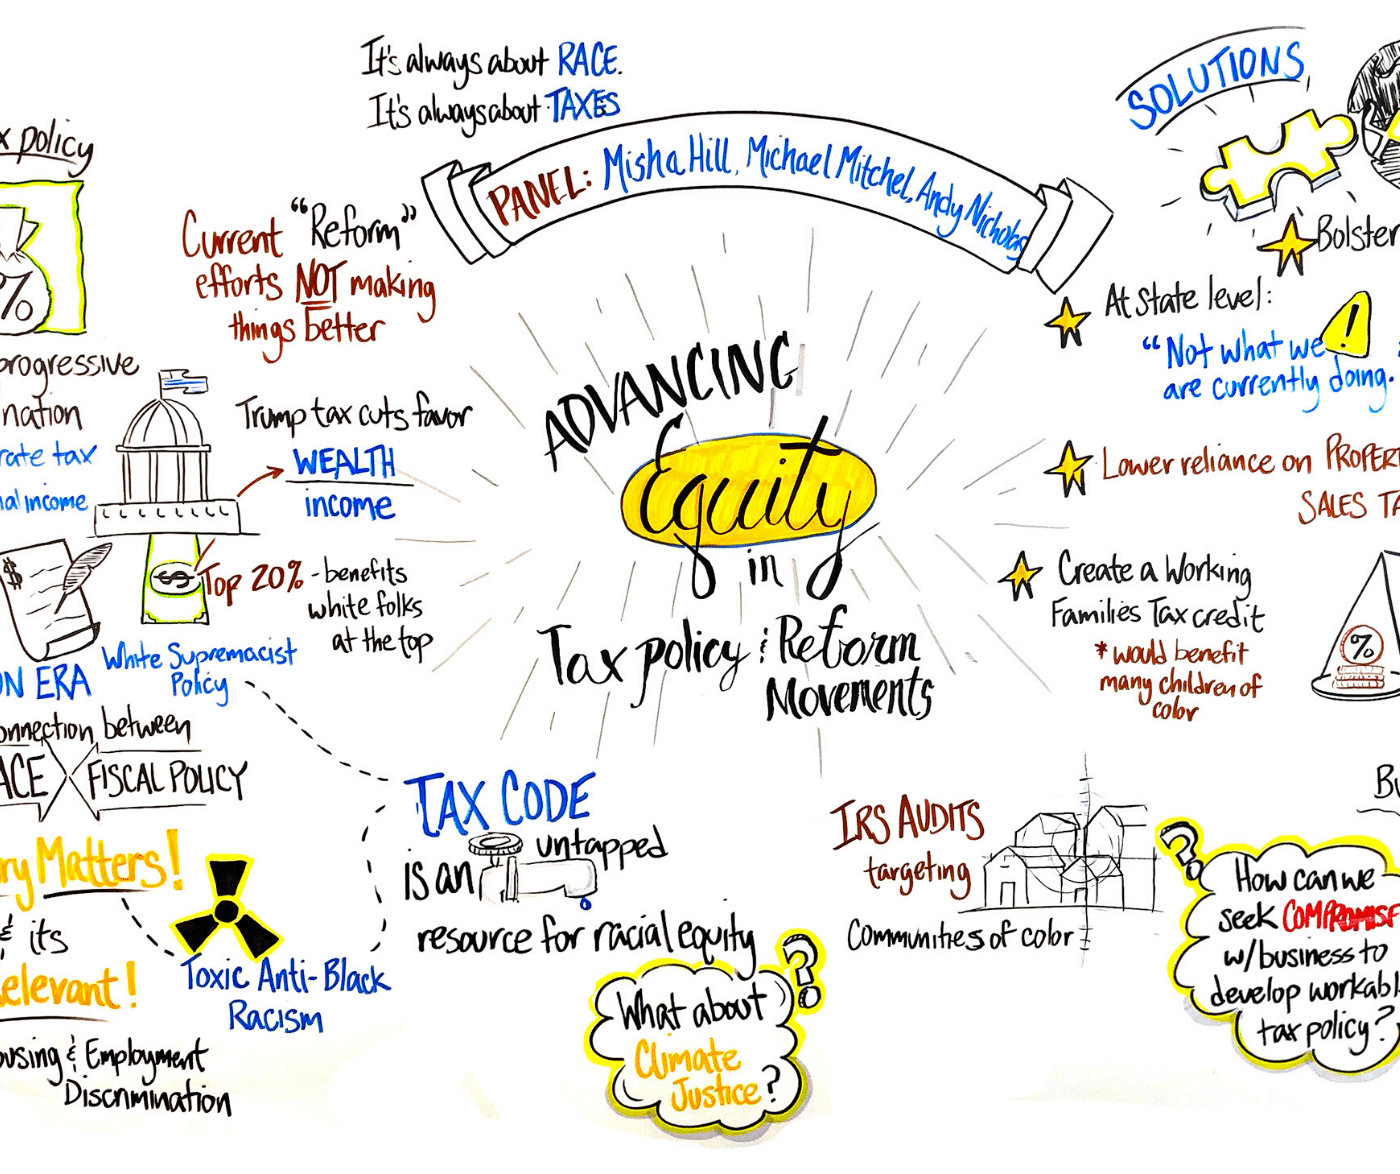 It's always about RACE.
It's always about TAXES
PANEL: Misha Hill, Michael Mitchel, Andy Nicholas
ADVANCING
Equity
in
Tax policy & Reform
Movements
x policy
%
rogressive
nation
rate tax
al income
$
N ERA
onnection between
ACE FISCAL POLICY
ry Matters!
& its
elevant!
ousing & Employment
Discrimination
Current "Reform"
efforts NOT making
things better
Trump tax cuts favor
WEALTH
income
$
Top 20% - benefits
white folks
at the top
White Supremacist
Policy
Toxic Anti-Black
Racism
TAX CODE
is an untapped
resource for racial equity
What about
Climate
Justice?
?
IRS AUDITS
targeting
Communities of color
SOLUTIONS
Bolster
At state level:
"Not what we
are currently doing.
!
Lower reliance on PROPER
SALES TA
Create a Working
Families Tax credit
* would benefit
many children of
color
%
Bu
?
How can we
seek COMPROMISE
w/business to
develop workabl
tax policy?